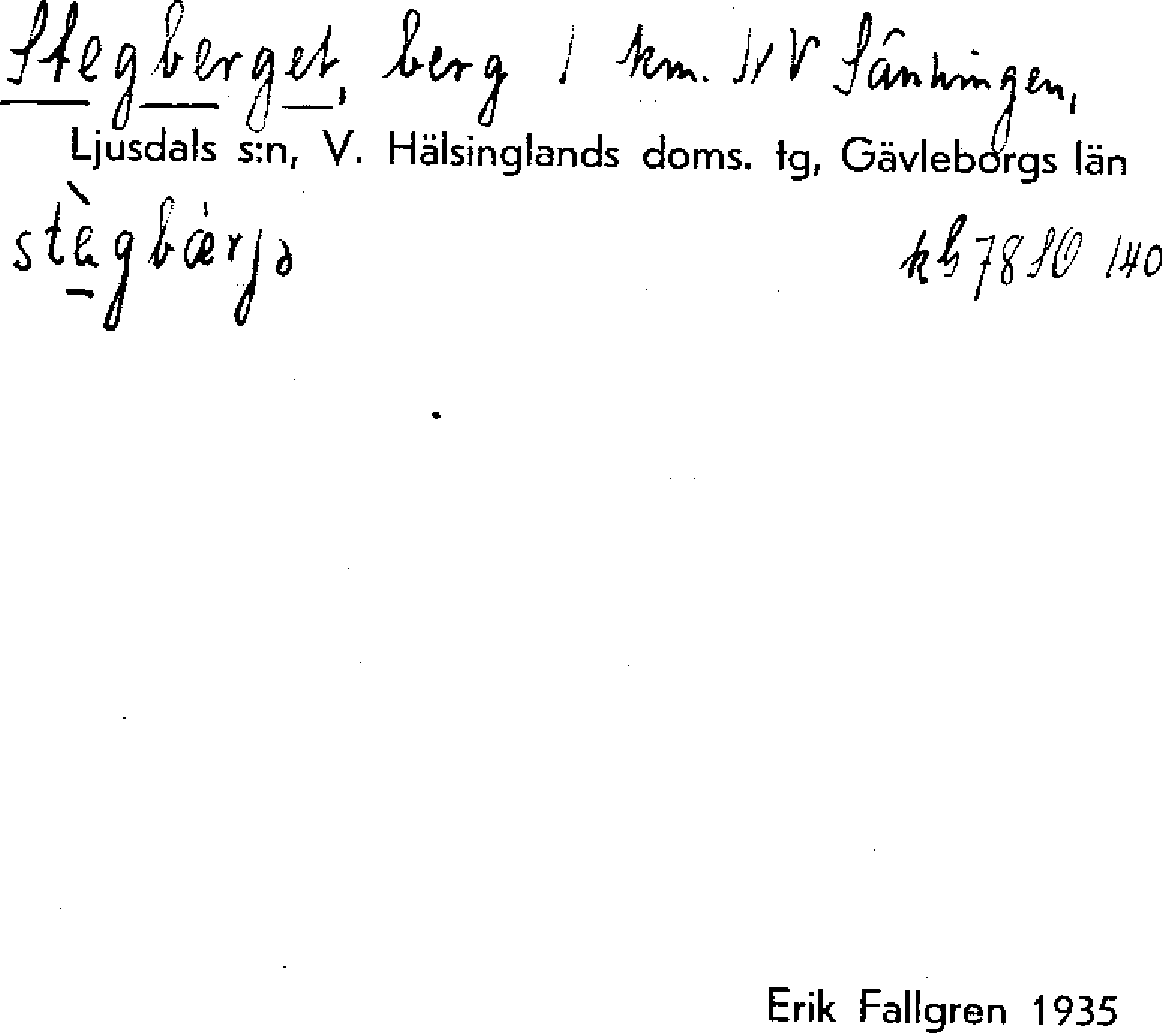 Stegberget, berg 1 km. NV Sänningen,
Ljusdals s:n, V. Hälsinglands doms. tg, Gävleborgs län
stègbærjə
kb 78 SO 140
Erik Fallgren 1935